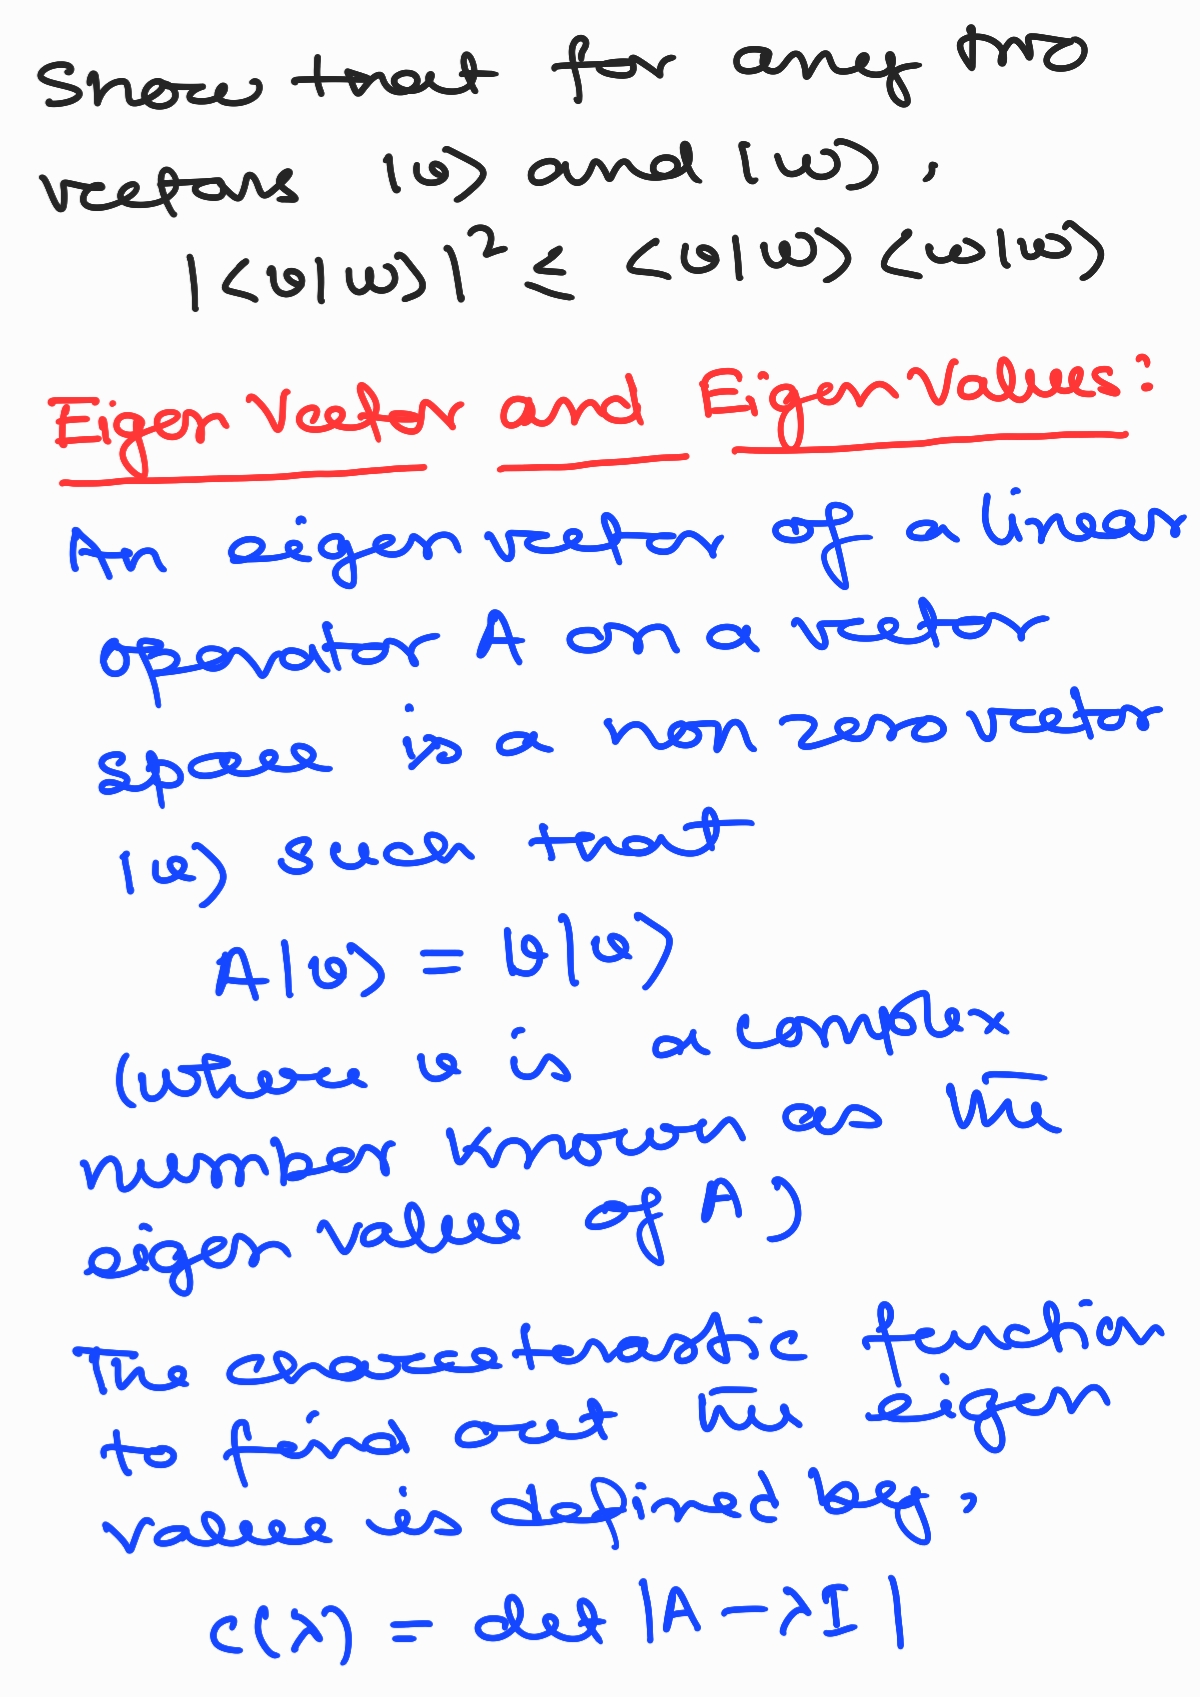 Show that for any two
vectors |v> and |w>,
|<v|w>|² ≤ <v|w> <w|w>
Eigen Vector and Eigen Values:
An eigen vector of a linear
operator A on a vector
space is a non zero vector
|v> such that
A|v> = v|v>
(where v is a complex
number known as the
eigen value of A)
The characteristic function
to find out the eigen
value is defined by,
c(λ) = det |A - λI|